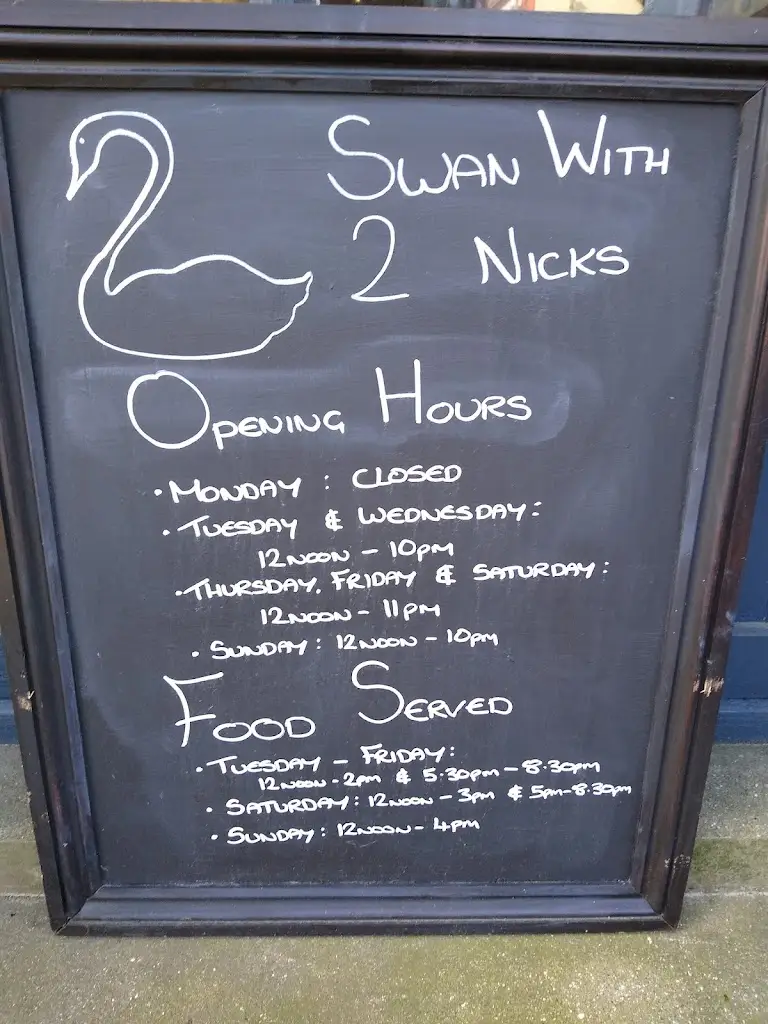 SWAN WITH
2 NICKS
OPENING HOURS
• MONDAY : CLOSED
• TUESDAY & WEDNESDAY :
12NOON - 10PM
• THURSDAY, FRIDAY & SATURDAY :
12NOON - 11PM
• SUNDAY : 12NOON - 10PM
FOOD SERVED
• TUESDAY - FRIDAY :
12NOON - 2PM & 5.30PM - 8.30PM
• SATURDAY : 12NOON - 3PM & 5PM - 8.30PM
• SUNDAY : 12NOON - 4PM